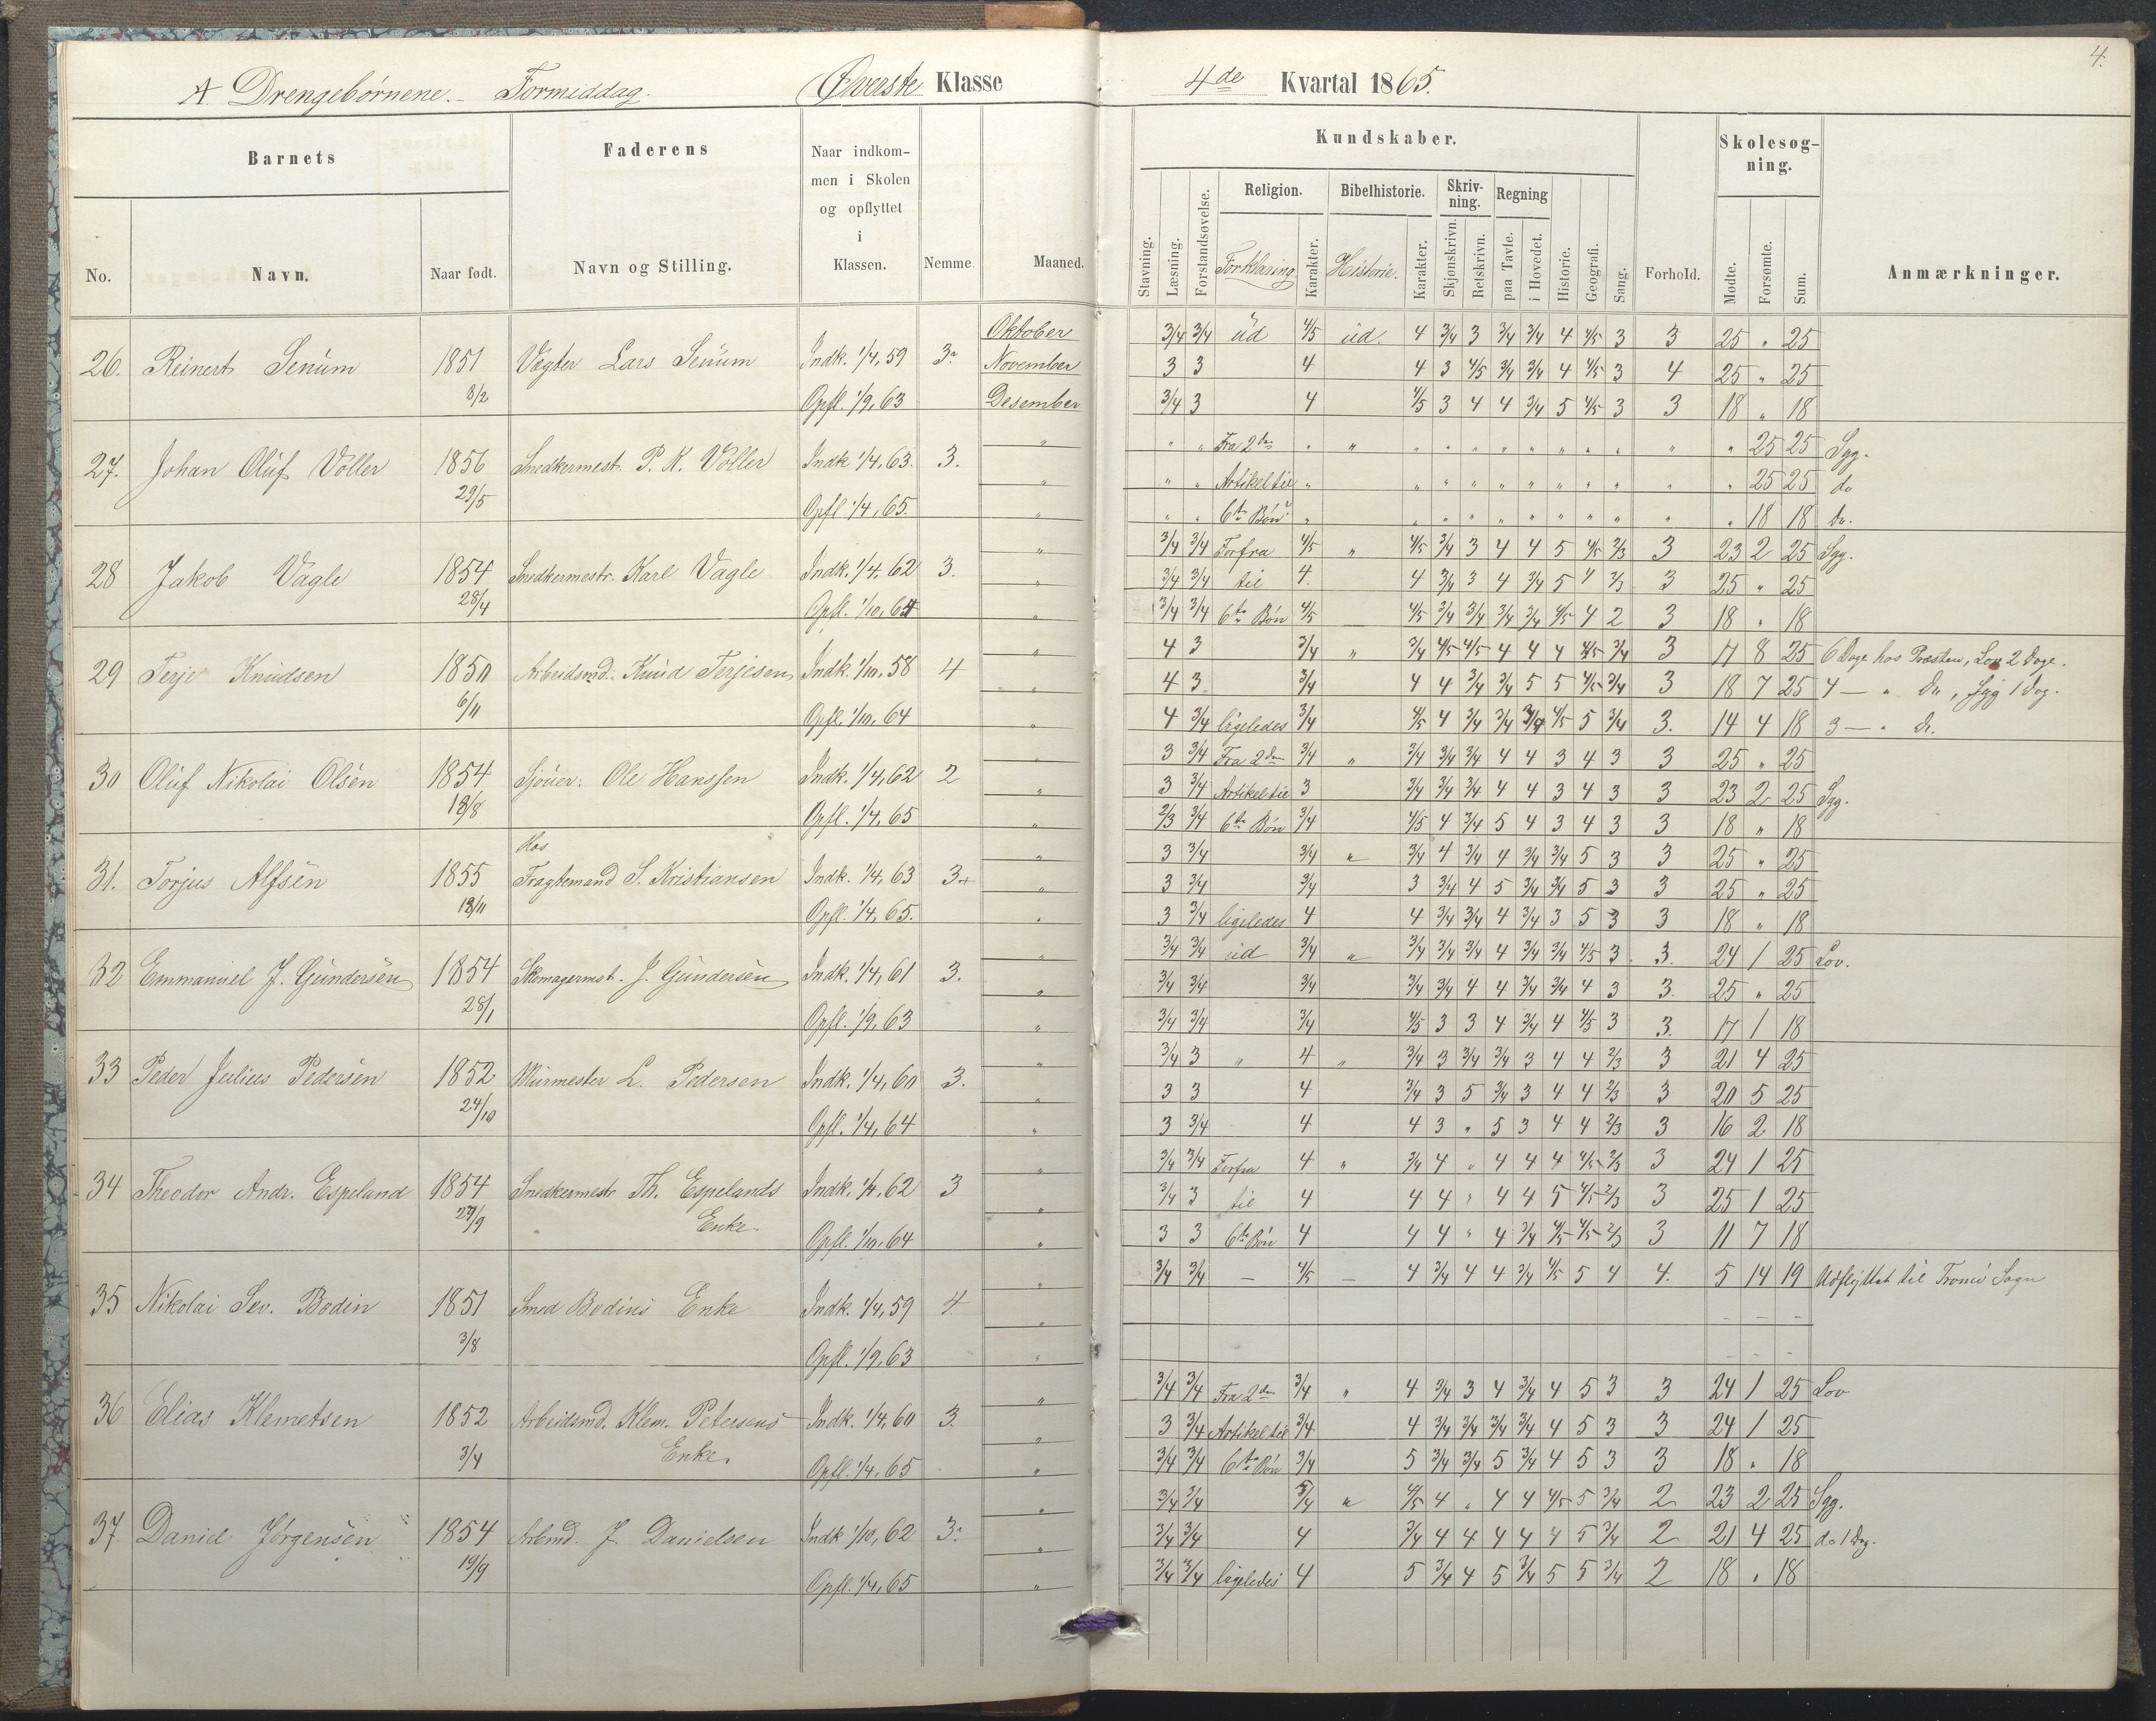 4.
A Drengebørnene. Formiddag. Øverste Klasse 4de Kvartal 1865.
Barnets Faderens Naar indkommen i Skolen og opflyttet i Klassen. Nemme. Maaned. Kundskaber. Forhold. Skolesøgning. Anmærkninger.
No. Navn. Naar født. Navn og Stilling. Stavning. Læsning. Forstandsøvelse. Religion. Forklaring Karakter. Bibelhistorie. Historie. Karakter. Skrivning. Skjønskrivn. Retskrivn. Regning paa Tavle. i Hovedet. Historie. Geografi. Sang. Mødte. Forsømte. Sum.
Oktober 3/4 3/4 ud 4/5 ud. 4 3/4 3 3/4 3/4 4 4/5 3 3 25 " 25
26. Reinert Senum 1851 Vægter Lars Senum Indk. 1/4, 59 3. November 3 3 4 4 3 4/5 3/4 3/4 4 4/5 3 4 25 " 25
3/2 Opfl. 1/9, 63 Desember 3/4 3 4 4/5 3 4 4 3/4 5 4/5 3 3 18 " 18
" " " Fra 2den " " " " " " " " " " " " 25 25 Syg.
27. Johan Oluf Voller 1856 Snedkermest. P. K. Voller Indk 1/4, 63. 3. " " " Artikel til " " " " " " " " " " " 25 25 do
29/5 Opfl 1/4, 65. " " " 6te Bøn " " " " " " " " " " " 18 18 do.
" 3/4 3/4 Forfra 4/5 " 4/5 3/4 3 4 4 5 4/5 2/3 3 23 2 25 Syg.
28 Jakob Vagle 1854 Snedkermestr. Karl Vagle Indk. 1/4, 62 3. " 3/4 3/4 til 4. 4 3/4 3 4 3/4 5 4 2/3 3 25 " 25
28/4 Opfl. 1/10, 64 " 3/4 3/4 6te Bøn 4/5 4/5 3/4 3/4 3/4 3/4 4/5 4 2 3 18 " 18
" 4 3 3/4 " 3/4 4/5 4/5 4 4 4 4/5 3/4 3 17 8 25 6 Dage hos Præsten, Lov 2 Dage.
29 Terje Knudsen 1850 Arbeidsmd. Knud Terjesen Indk. 1/10. 58 4 " 4 3 3/4 4 4 3/4 3/4 5 5 4/5 3/4 3 18 7 25 4 — " Do, Syg 1 Dag.
6/11 Opfl. 1/10, 64 " 4 3/4 ligeledes 3/4 4/5 4 3/4 3/4 3/4 4/5 5 3/4 3. 14 4 18 3 — " Do.
" 3 3/4 Fra 2den 3/4 " 3/4 3/4 3/4 4 4 3 4 3 3 25 " 25
30 Oluf Nikolai Olsen 1854 Sjøuer: Ole Hanssen Indk. 1/4, 62 2 " 3 3/4 Artikel til 3 3/4 3/4 3/4 4 4 3 4 3 3 23 2 25 Syg.
18/8 Opfl. 1/4, 65 " 2/3 3/4 6te Bøn 3/4 4/5 4 3/4 5 4 3 4 3 3 18 " 18
Hos " 3 3/4 3/4 " 3/4 4 3/4 4 3/4 3/4 5 3 3 25 " 25
31. Torjus Alfsen 1855 Fragtemand S. Kristiansen Indk. 1/4, 63 3+ " 3 3/4 3/4 3 3/4 4 5 3/4 3/4 5 3 3 25 " 25
18/11 Opfl. 1/4, 65. " 3 3/4 ligeledes 4 4 3/4 3/4 4 3/4 3 5 3 3 18 " 18
" 3/4 3/4 ud 3/4 " 3/4 3/4 3/4 4 3/4 3/4 4/5 3 3. 24 1 25 Lov.
32 Emmanuel J. Gundersen 1854 Skomagermst. J. Gundersen Indk. 1/4, 61 3. " 3/4 3/4 3/4 3/4 3/4 4 4 3/4 3/4 4 3 3. 25 " 25
28/1 Opfl. 1/9, 63 " 3/4 3/4 3/4 4/5 3 3 4 3/4 4 4/5 3 3. 17 1 18
" 3/4 3 " 4 " 3/4 3 3/4 3/4 3 4 4 2/3 3 21 4 25
33 Peder Julius Pedersen 1852 Murmester L. Pedersen Indk. 1/4, 60 3. " 3 3 4 3/4 3 5 3/4 3 4 4 2/3 3 20 5 25
24/10 Opfl. 1/4, 64 " 3 3/4 4 4 3 " 5 3 4 4 2/3 3 16 2 18
" 3/4 3/4 Forfra 4 " 3/4 4 " 4 4 4 4/5 2/3 3 24 1 25
34 Theodor Andr. Espeland 1854 Snedkermestr Th. Espelands Indk. 1/4, 62 3 " 3/4 3 til 4 4 4 " 4 4 5 4/5 2/3 3 25 1 25
29/9 Enke. Opfl. 1/10. 64 " 3 3 6te Bøn 4 4 4 " 4 3/4 4/5 4/5 2/3 3 11 7 18
" 3/4 3/4 — 4/5 — 4 3/4 4 4 3/4 4/5 5 4 4. 5 14 19 Udflyttet til Tromø Sogn
35 Nikolai Sev. Bodin 1851 Smed Bodins Enke Indk. 1/4, 59 4. " - - -
3/8 Opfl. 1/9, 63 " - - -
" 3/4 3/4 Fra 2den 3/4 " 4 3/4 3 4 3/4 4 5 3 3 24 1 25 Lov
36 Elias Klemetsen 1852 Arbeidsmd. Klem. Petersens Indk. 1/4, 60 3. " 3 3/4 Artikel til 3/4 4 3/4 3/4 3/4 3/4 4 5 3 3 24 1 25
3/4 Enke. Opfl. 1/4, 65 " 3/4 3/4 6te Bøn 3/4 5 3/4 3/4 5 3/4 4 5 3 3 18 " 18
" 3/4 3/4 3/4 " 4/5 4 " 4 4 4/5 5 3/4 2 23 2 25 Syg.
37. Daniel Jørgensen 1854 Arbmd. J. Danielsen Indk 1/10, 62 3. " 3/4 3/4 4 3/4 4 4 4 4 4 5 3/4 2 21 4 25 do 1 Dag.
19/9 Opfl. 1/4, 65 " 3/4 3/4 ligeledes 4 5 3/4 4 5 3/4 5 5 3/4 2 18 " 18